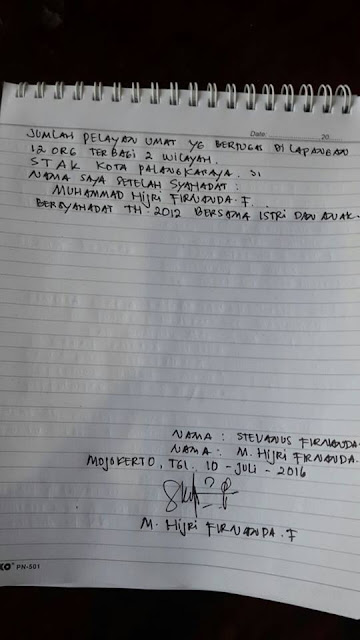 Date 20
JUMLAH PELAYAN UMAT YG BERTUGAS DI LAPANGAN
12 ORG TERBAGI 2 WILAYAH.
STAK KOTA PALANGKARAYA. SI
NAMA SAYA SETELAH SYAHADAT :
MUHAMMAD HIJRI FIRNANDA. F.
BERSYAHADAT TH. 2012 BERSAMA ISTRI DAN ANAK.
NAMA : STEVANUS FIRNANDA.
NAMA : M. HIJRI FIRNANDA.
MOJOKERTO, TGL. 10 - JULI - 2016
M. HIJRI FIRNANDA. F
KO PN-501